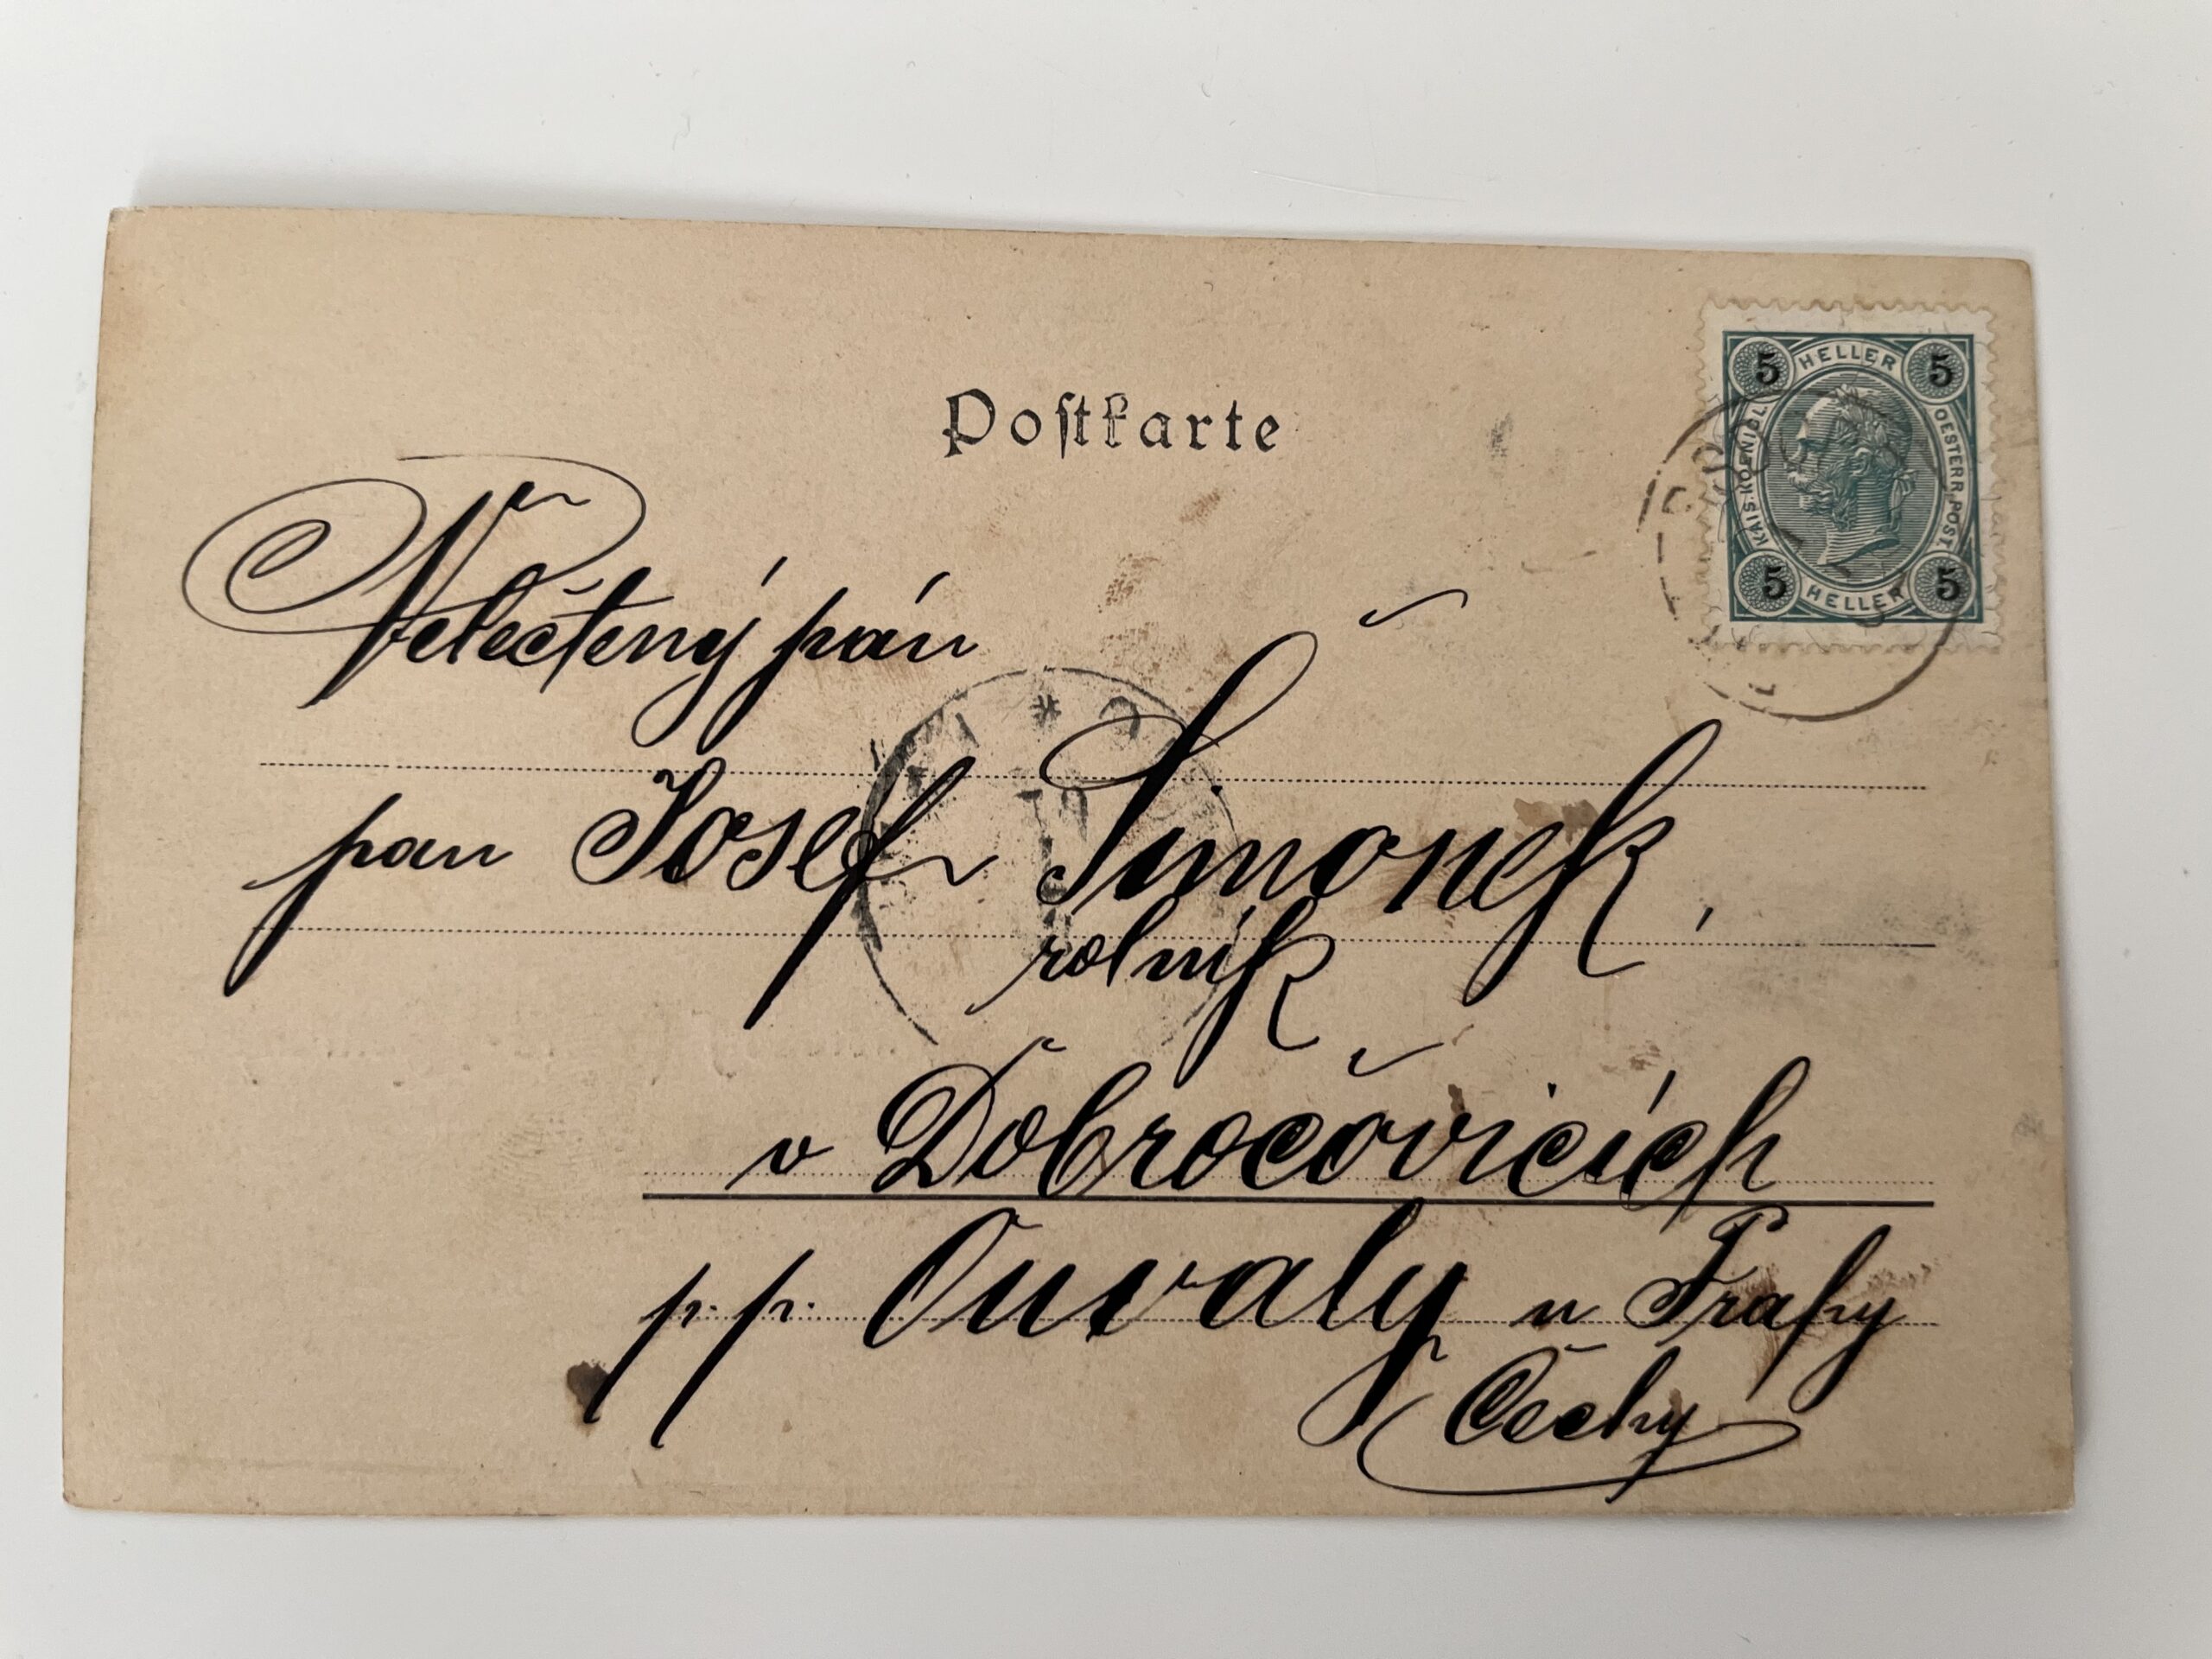 Postkarte
5 HELLER 5
KAIS. KOENIGL.
OESTERR. POST.
5 HELLER 5
Velectěný pán
pan Josef Šimonek,
rolník
v Dobročovicích
p. p. Ouvaly u Prahy
Čechy